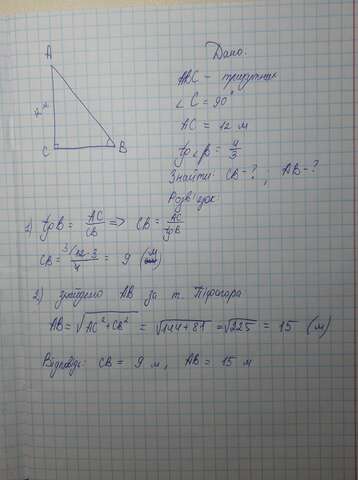 Дано:
A
ABC - трикутник
∠ C = 90°
12
AC = 12 м
tg ∠ β = 4/3
C
B
Знайти: CB - ? ; AB - ?
Розв'язок
1) tg B = AC/CB => CB = AC/tg B
CB = 12·3/4 = 9 (м)
2) знайдемо AB за т. Піфагора
AB = √AC² + CB² = √144 + 81 = √225 = 15 (м)
Відповідь: CB = 9 м, AB = 15 м